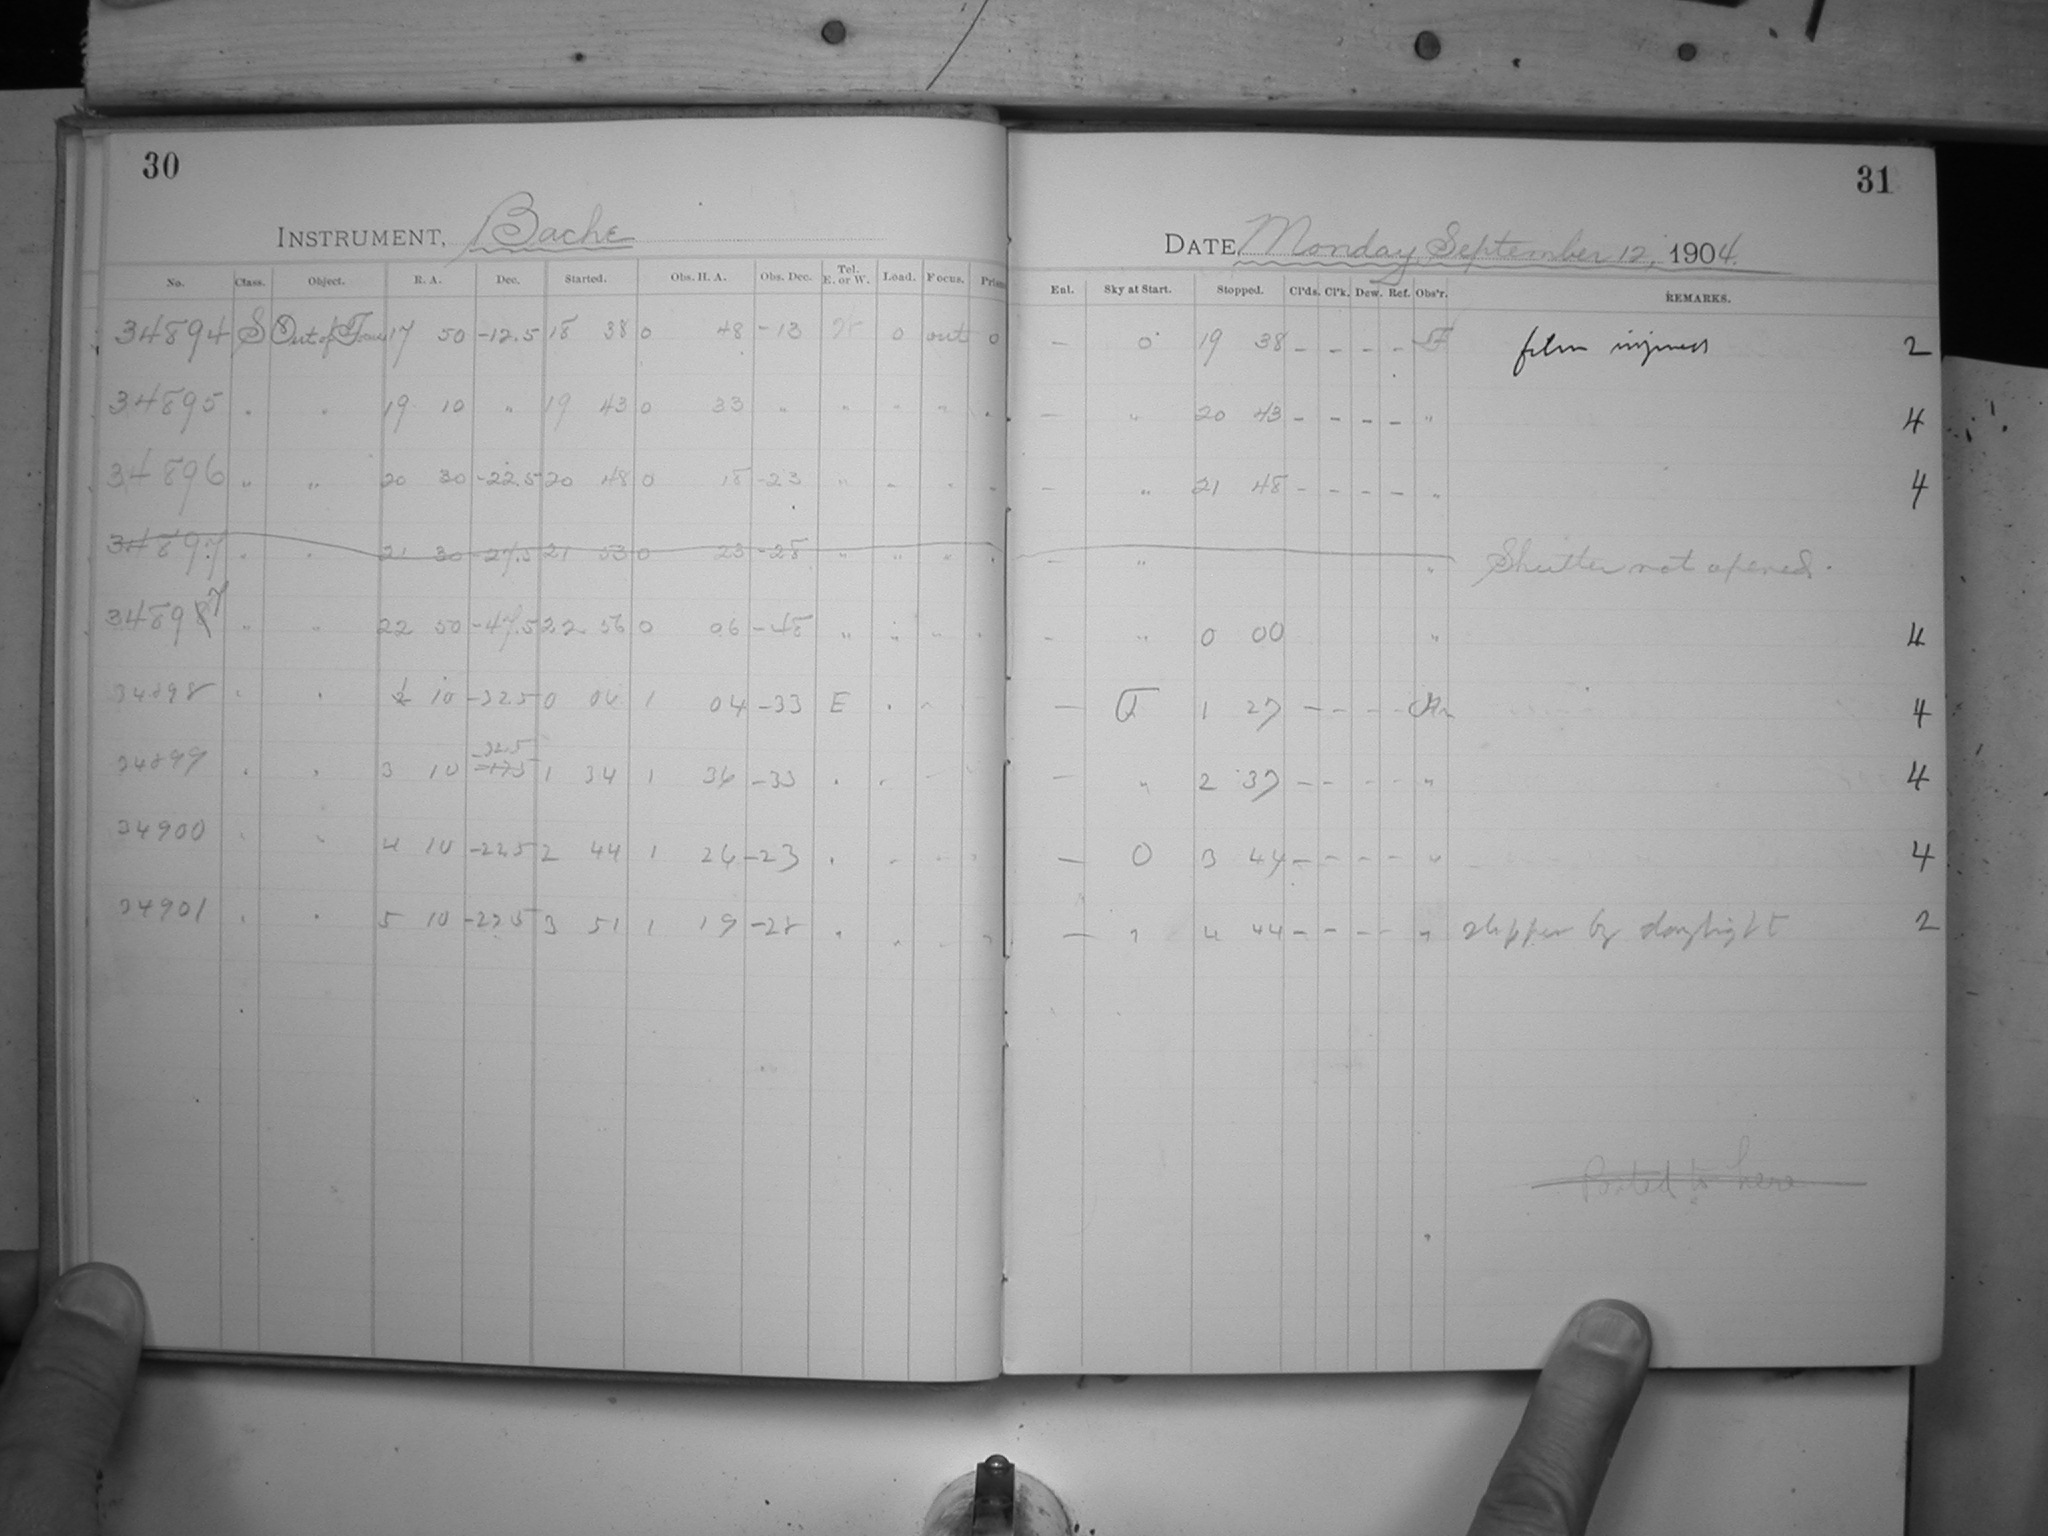 30
31
INSTRUMENT, Bache
DATE Monday, September 12, 1904.
No. Class. Object. R. A. Dec. Started. Obs. H. A. Obs. Dec. Tel. E. or W. Load. Focus. Prism
Enl. Sky at Start. Stopped. Cl'ds. Cl'k. Dew. Ref. Obs'r. REMARKS.
34894 S Out of Focus 17 50 -12.5 18 38 0 48 -13 W 0 out 0 — 0 19 38 - - - - film injured 2
34895 " " 19 10 " 19 43 0 33 " " " " " — " 20 43 - - - - " 4
34896 " " 20 30 -22.5 20 48 0 18 -23 " " " " — " 21 48 - - - - " 4
34897 " " 21 30 -27.5 21 53 0 23 -28 " " " " - " " Shutter not opened.
34897 " " 22 50 -47.5 22 56 0 06 -48 " " " " - " 0 00 " 4
34898 " " 10 -32.5 0 06 1 04 -33 E " " — 1 27 - - - - 4
34899 " " 3 10 -32.5 1 34 1 36 -33 " " " " — " 2 37 - - - - " 4
34900 " " 4 10 -22.5 2 44 1 26 -23 " " " " — 0 3 44 - - - - " 4
34901 " " 5 10 3 51 1 19 -28 " " " " — " 4 44 - - - - " by daylight 2
Posted to here